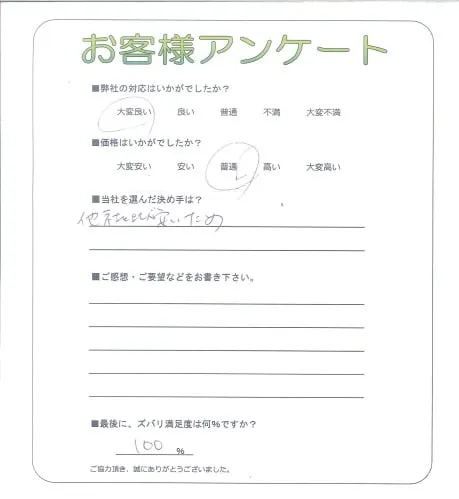 お客様アンケート
■弊社の対応はいかがでしたか？
大変良い 良い 普通 不満 大変不満
■価格はいかがでしたか？
大変安い 安い 普通 高い 大変高い
■当社を選んだ決め手は？
他社比が安いため
■ご感想・ご要望などをお書き下さい。
■最後に、ズバリ満足度は何％ですか？
100 %
ご協力頂き、誠にありがとうございました。